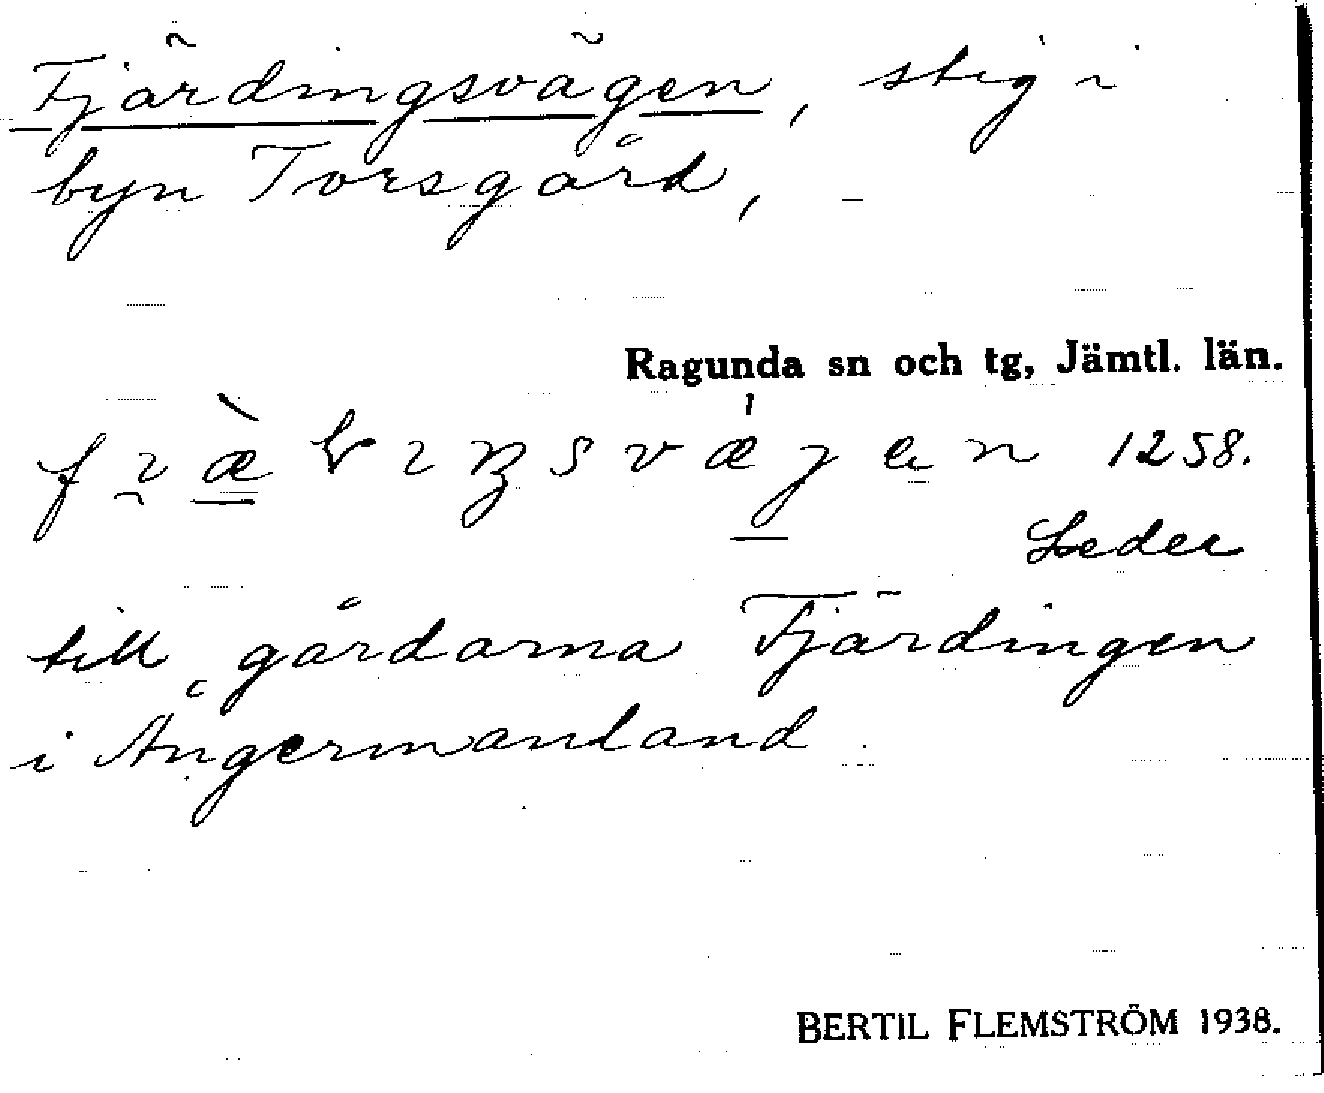 Fjärdingsvägen, stig i
byn Torsgård, –
Ragunda sn och tg, Jämtl. län.
1258.
Leder
till gårdarna Fjärdingen
i Ångermanland
BERTIL FLEMSTRÖM 1938.